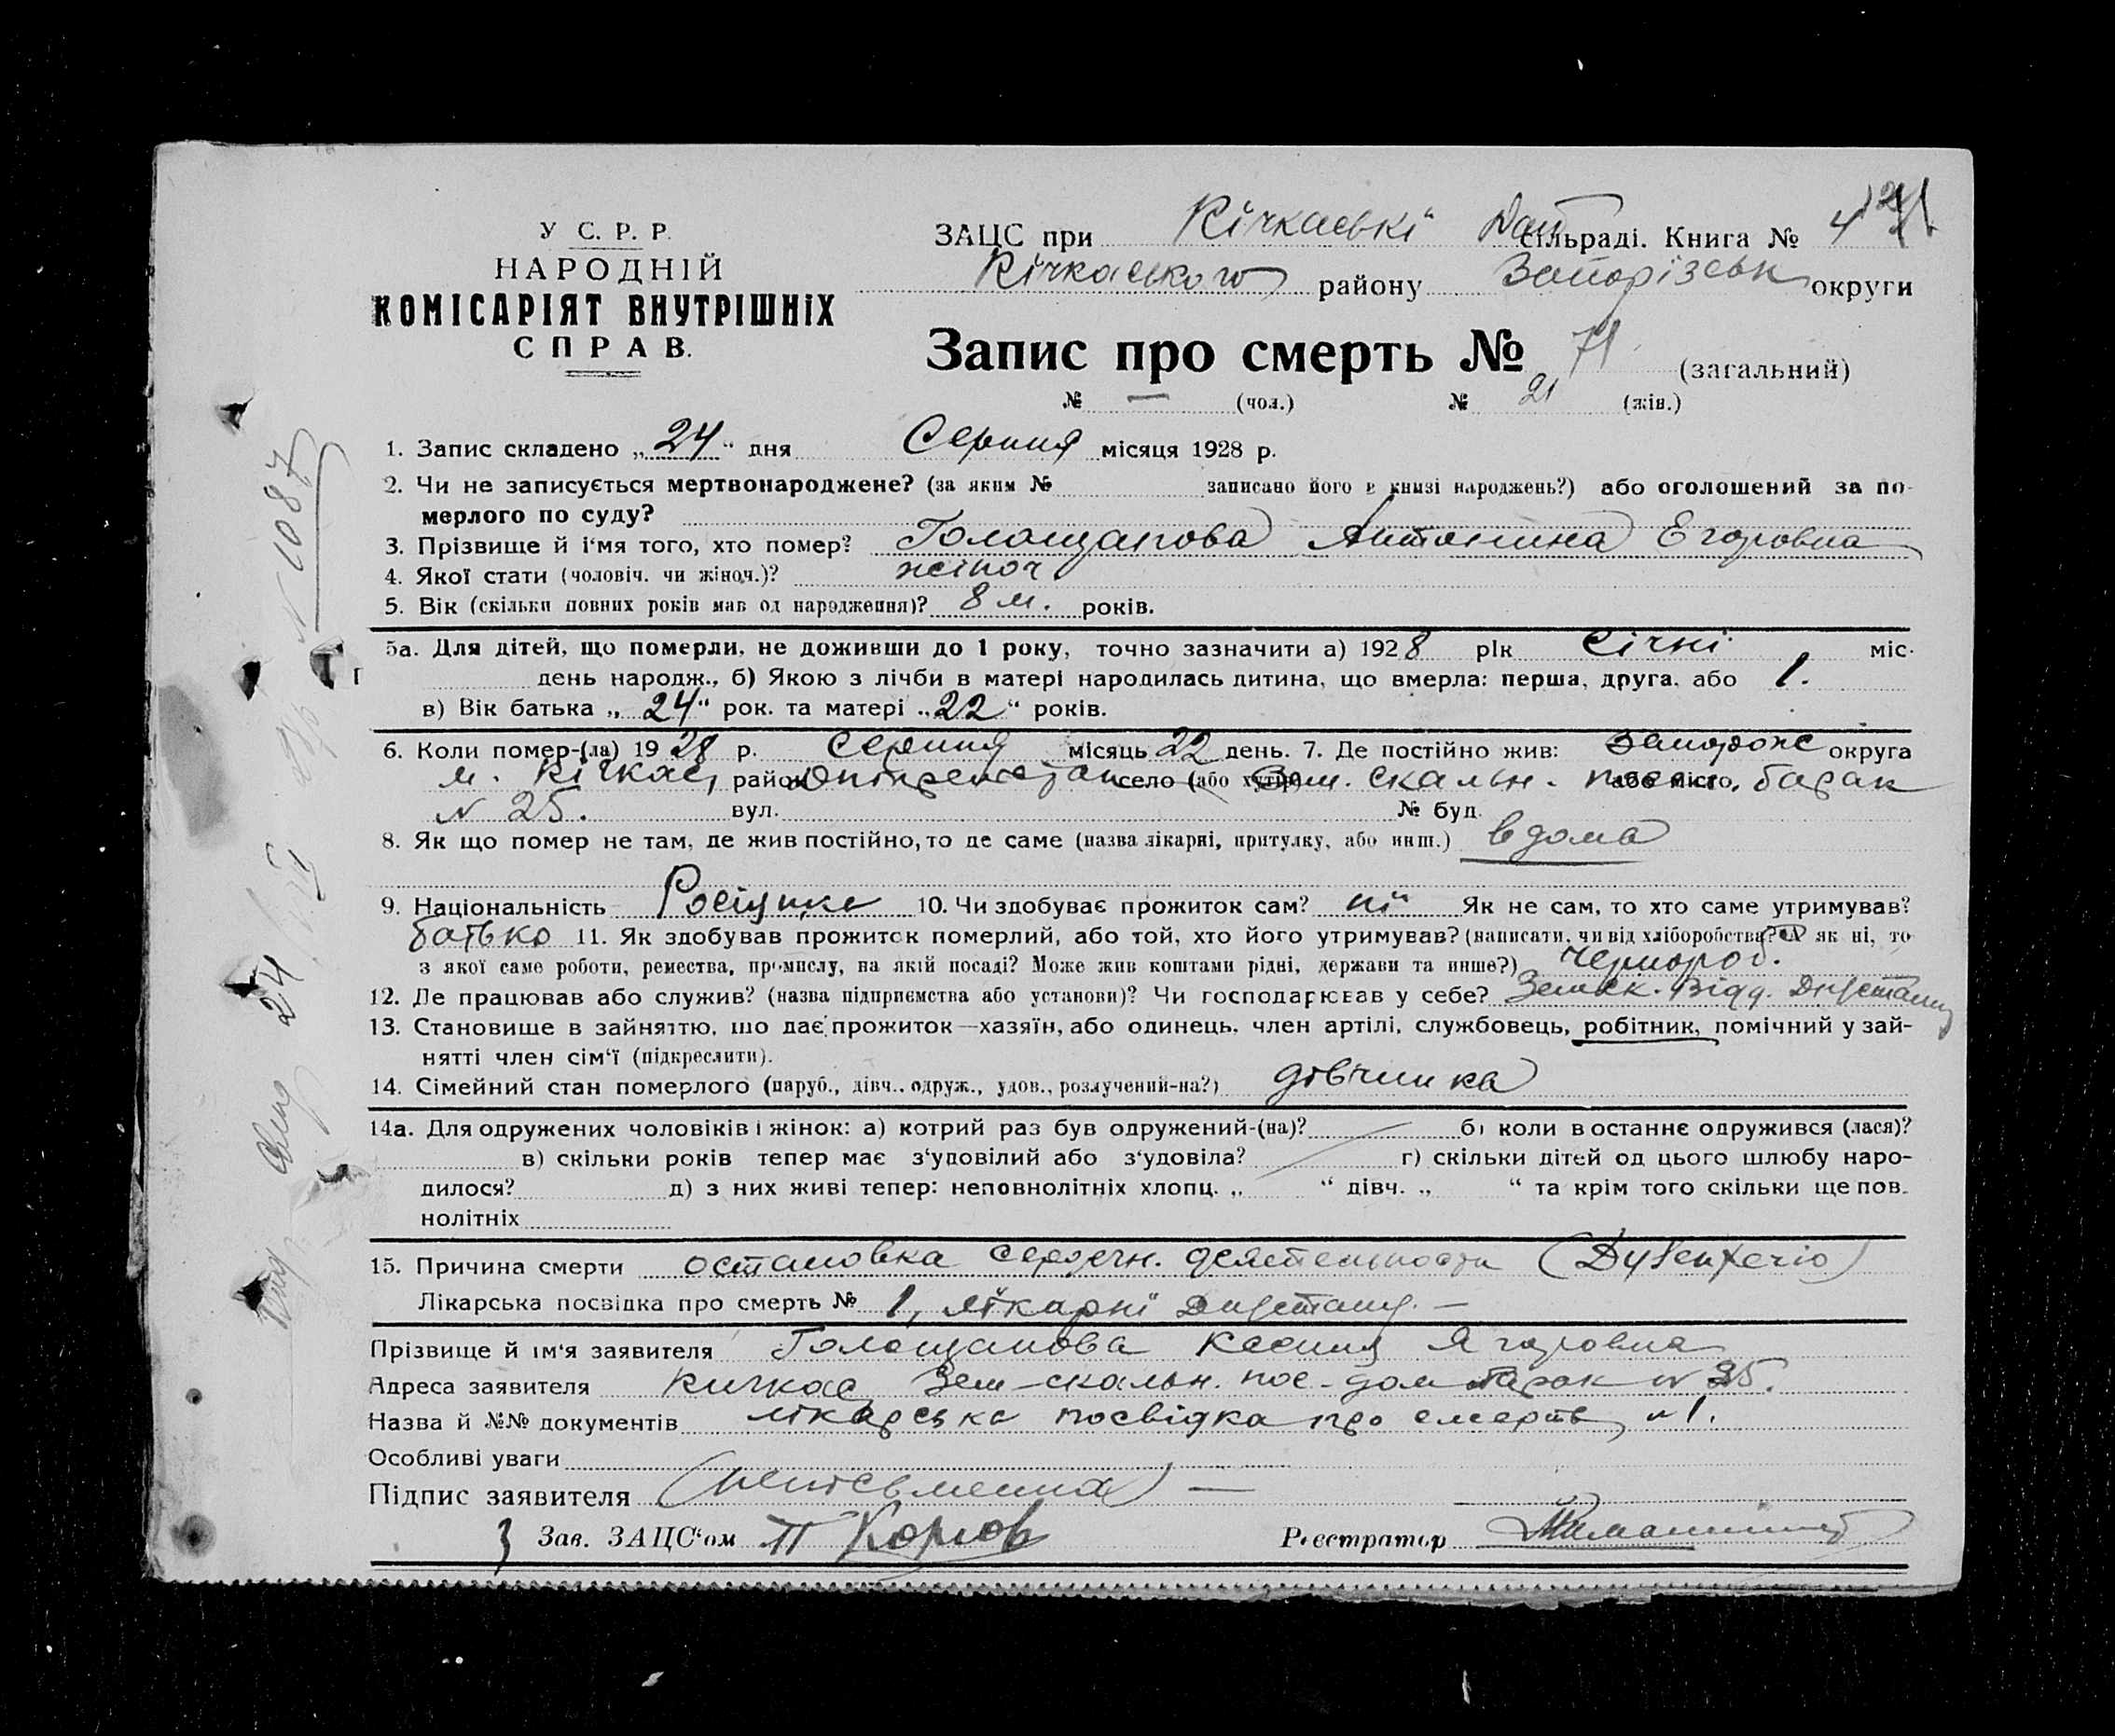 У С. Р. Р.
НАРОДНІЙ
КОМІСАРІЯТ ВНУТРІШНІХ
СПРАВ.
ЗАЦС при Кічкаські сільраді. Книга № 4
Кічкаського району Запорізськ округи
Запис про смерть № 71 (загальний)
№ — (чол.) № 21 (жін.)
1. Запис складено „24“ дня Серпня місяця 1928 р.
2. Чи не записується мертвонароджене? (за яким № записано його в книзі народжень?) або оголошений за по-
мерлого по суду?
3. Прізвище й і'мя того, хто помер? Голощапова Антонина Егоровна
4. Якої стати (чоловіч. чи жіноч.)? жіноч
5. Вік (скільки повних років мав од народження)? 8 м. років.
5а. Для дітей, що померли, не доживши до 1 року, точно зазначити а) 1928 рік Січні міс.
день народж., б) Якою з лічби в матері народилась дитина, що вмерла: перша, друга, або 1.
в) Вік батька „24“ рок. та матері „22“ років.
6. Коли помер-(ла) 1928 р. Серпня місяць 22 день. 7. Де постійно жив: Запорож округа
м. Кічкас, район село (або хутір) Зем. скальн. або місто, барак
N 25. вул. № буд.
8. Як що помер не там, де жив постійно, то де саме (назва лікарні, притулку, або инш.) вдома
9. Національність Росіянка 10. Чи здобуває прожиток сам? ні Як не сам, то хто саме утримував?
батько 11. Як здобував прожиток померлий, або той, хто його утримував? (написати, чи від хліборобства? А як ні, то
з якої саме роботи, ремества, промислу, на якій посаді? Може жив коштами рідні, держави та инше?) Чернороб.
12. Де працював або служив? (назва підприємства або установи)? Чи господарював у себе? Земск. відд.
13. Становище в зайняттю, що дає прожиток—хазяїн, або одинець, член артілі, службовець, робітник, помічний у зай-
нятті член сім'ї (підкреслити).
14. Сімейний стан померлого (паруб., дівч., одруж., удов., розлучений-на?) дівчинка
14а. Для одружених чоловіків і жінок: а) котрий раз був одружений-(на)? б) коли в останнє одружився (лася)?
в) скільки років тепер має з'удовілий або з'удовіла? г) скільки дітей од цього шлюбу наро-
дилося? д) з них живі тепер: неповнолітніх хлопц. „ “ дівч. „ “ та крім того скільки ще пов-
нолітніх
15. Причина смерти остановка сердечн. деятельности (Dysenterio)
Лікарська посвідка про смерть № 1, лікарні
Прізвище й ім'я заявителя Голощапова Ксения Ягоровна
Адреса заявителя Кичкас Зем-скальн. пос- дом барак N 25.
Назва й №№ документів лікарська посвідка про смерть N 1.
Особливі уваги
Підпис заявителя (неписьменна) —
З Зав. ЗАЦС'ом П Корнов Реєстратор
N 1087
24